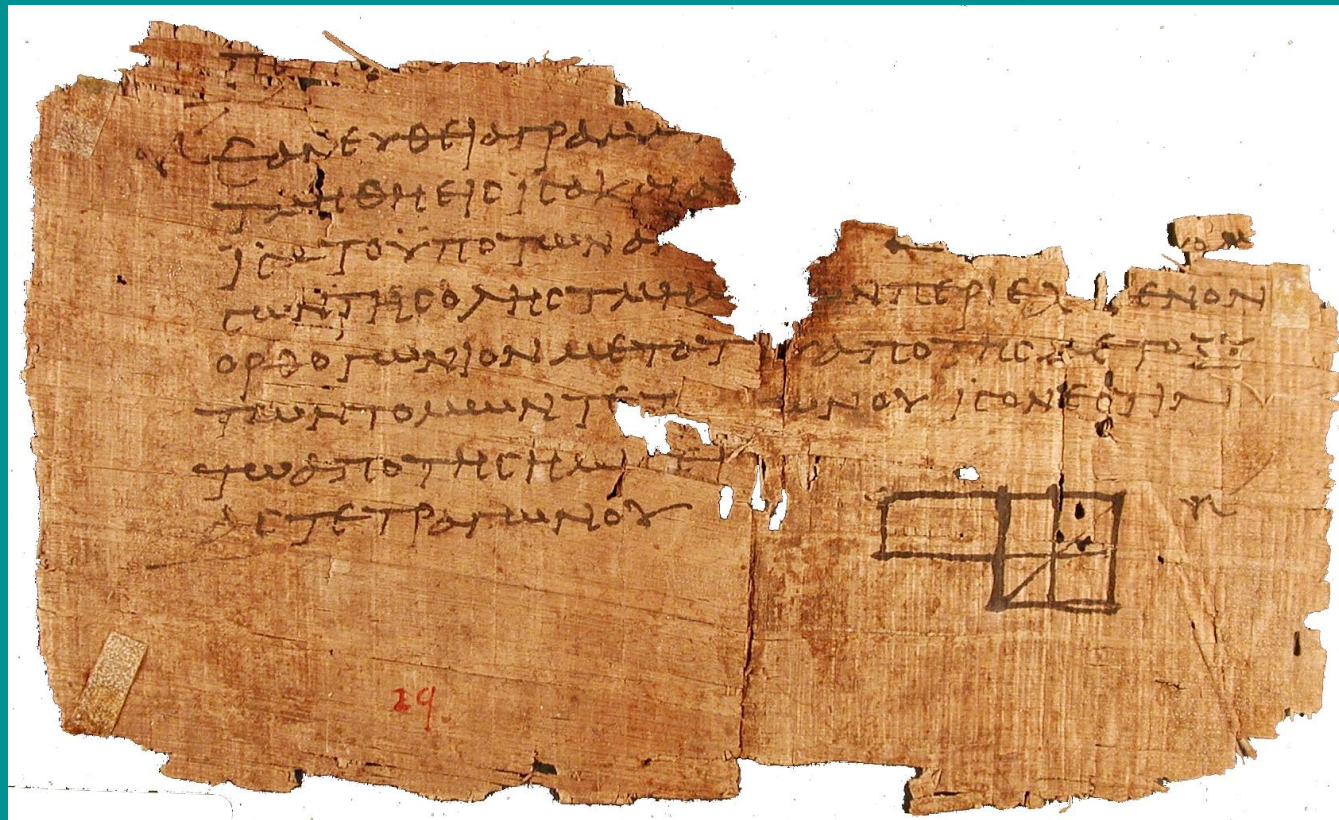 ε ΕΑΝ ΕΥΘΕΙΑ ΓΡΑΜ
ΤΜΗΘΗ ΕΙϹ ΙϹΑ ΚΑΙ Α
ΙϹΑ ΤΟ ΥΠΟ ΤΩΝ ΑΝ
ϹΩΝ ΤΗϹ ΟΛΗϹ ΤΜΗΜ ΩΝ ΠΕΡΙΕΧ ΜΕΝΟΝ
ΟΡΘΟΓΩΝΙΟΝ ΜΕΤΑ Τ ΑΠΟ ΤΗϹ ΜΕΤΟΞΥ
ΤΩΝ ΤΟΜΩΝ ΤΕΤ ΩΝΟΥ ΙϹΟΝ ΕϹΤΙΝ
ΤΩ ΑΠΟ ΤΗϹ ΗΜΙ ΕΙ
ΑϹ ΤΕΤΡΑΓΩΝΟΥ
29